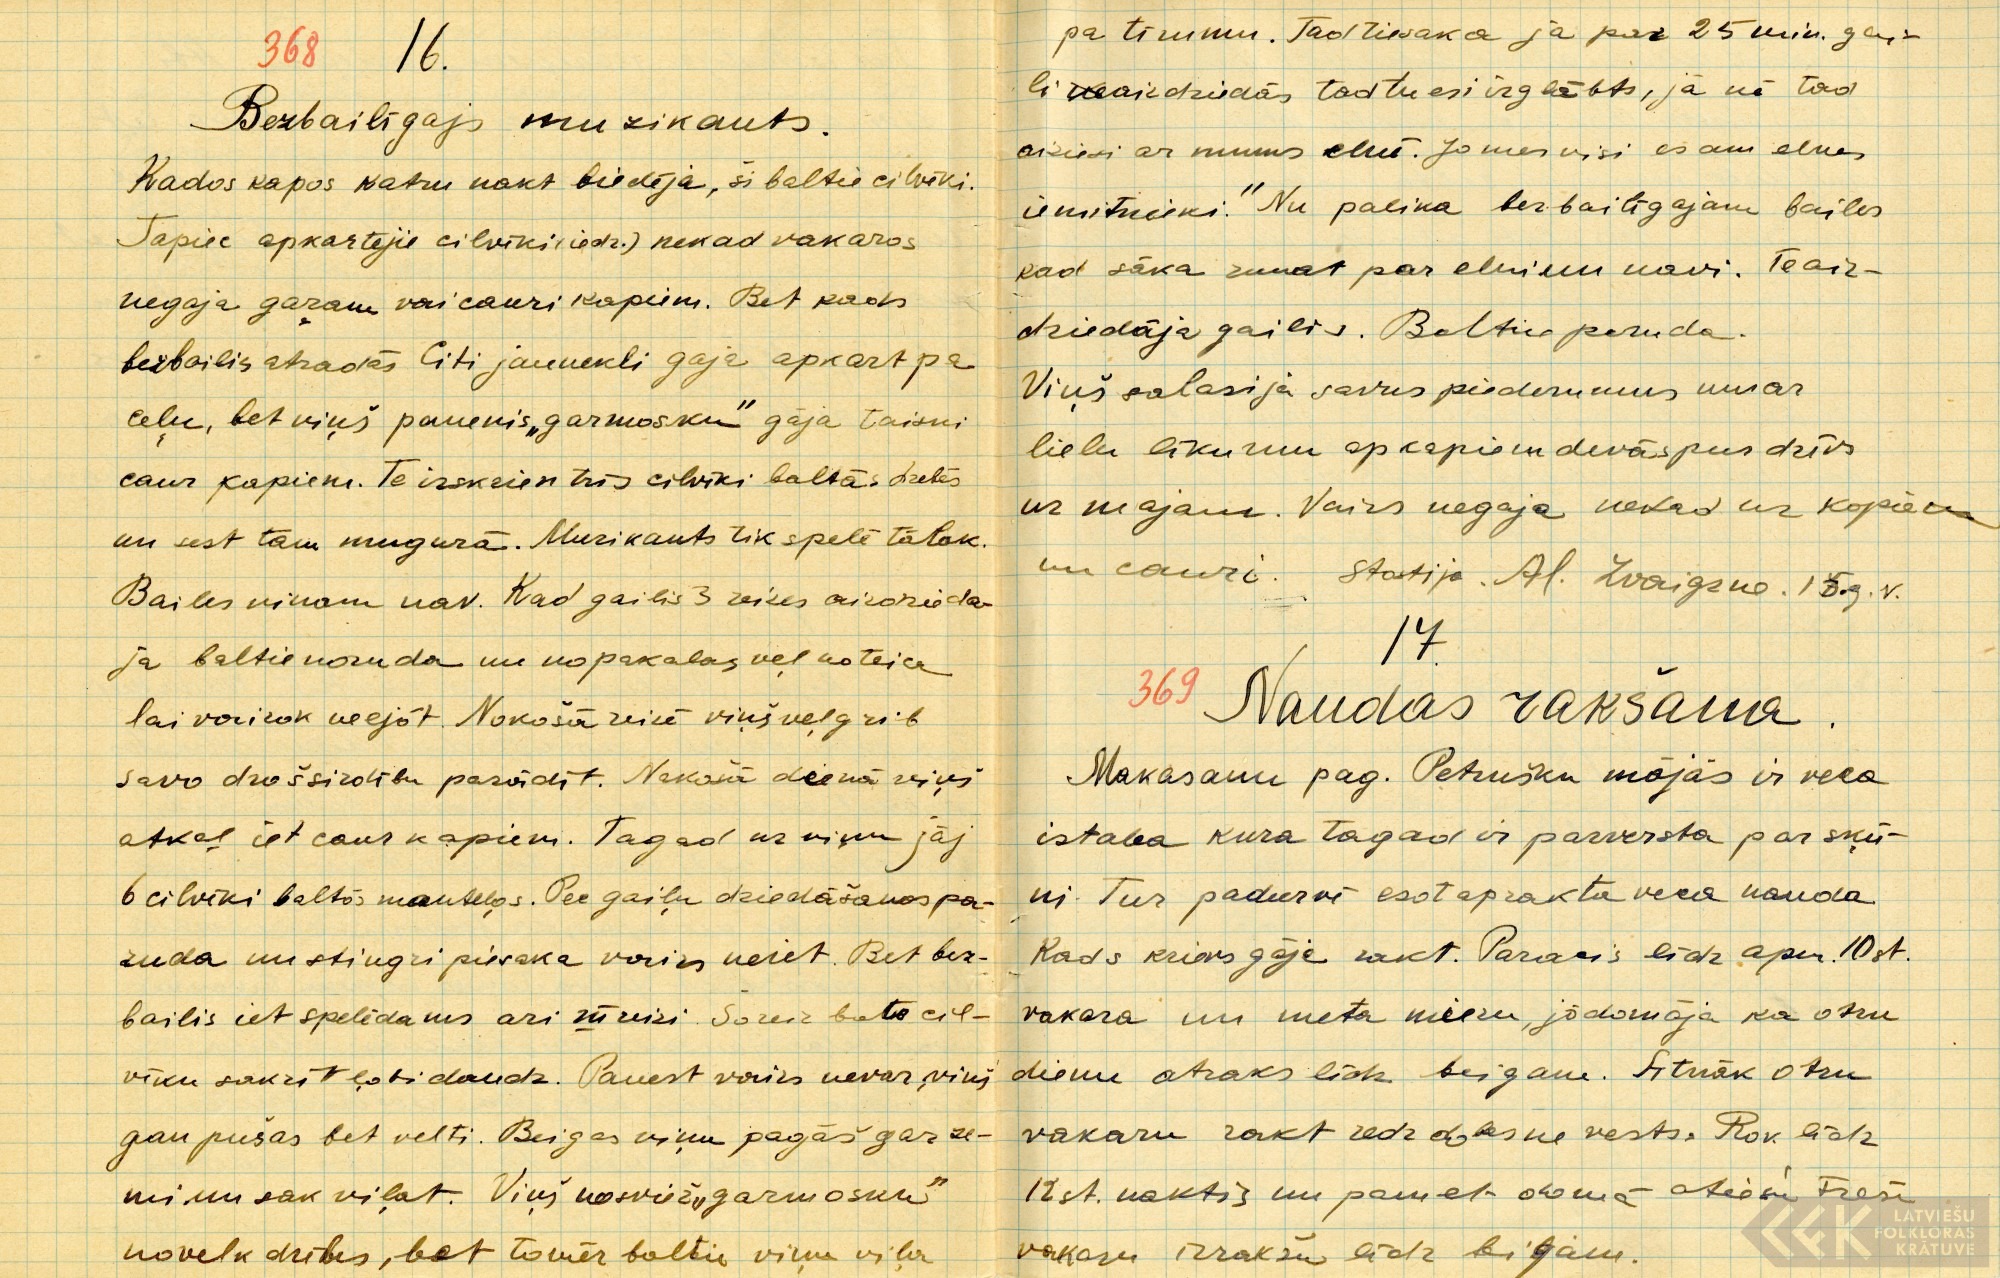 368 16.
Bezbailīgajs muzikants.
Kados kapos katru nakt biedēja, ši baltie cilvēki.
Tapiec apkartējie cilvēki (iedz.) nekad vakaros
negaja gaŗam vai cauri kapiem. Bet kads
bezbailis atradās Citi jaunekli gaja apkart pa
ceļu, bet viņš paņemis „garmosku" gāja taisni
caur kapiem. Te izskrien trīs cilvēki baltās drebēs
un sest tam mugurā. Muzikants tik spelē tālak.
Bailes viņam nav. Kad gailis 3 reizes aizdzieda-
ja baltie nozuda un nopakaļas vēl noteica
lai vairak neejot. Nākošā reizē viņš vēl grib
savo drošsirdību parādit. Nakošā dienā viņš
atkaļ iet caur kapiem. Tagad uz viņu jāj
6 cilvēki baltos manteļos. Pec gaiļu dziedāšanos pa-
zuda un stingri piesaka vairs neiet. Bet bez-
bailis iet spelēdams ari III reizi. Šoreiz balto cil-
vēku sakrīt ļoti daudz. Panest vairs nevar, viņš
gan pušas bet velti. Beigas viņu pagāš gar ze-
mi un sak viļat. Viņš nosviež „garmosku"
novelk drēbes, bet tomēr baltie viņu viļa
pa tīrumu. Tad tiesaka ja par 25 min. gai-
li aizdziedās tad tu esi izglābts, jā nē tad
aiziesi ar mums ellē. Jo mes visi esam elles
iemitnieki." Nu palika bezbailīgajam bailes
kad sāka runat par elli un navi. Te aiz-
dziedāja gailis. Baltie pazuda.
Viņš salasija savus piederumus un ar
lielu līkumu ap kapiem devās pus dzīvs
uz majam. Vairs negaja nekad uz kapiem
un cauri. Stastija Al. Zvaigzne. 15.g.v.
17.
369 Naudas rakšana.
Makašanu pag. Petrušku mājās ir veca
istaba kura tagad ir parversta par šķū-
ni. Tur padurvē esot aprakta veca nauda
Kads krievs gāja rakt. Paracis līdz apm. 10 st.
vakara un meta mieru, jo domāja ka otru
dienu atraks līdz beigam. Sitnāk otru
vakaru rakt redz ne vests. Rok līdz
12 st. naktīs un pamet domā Treši
vakaru izrakšu līdz beigam.
LATVIEŠU
FOLKLORAS
KRĀTUVE